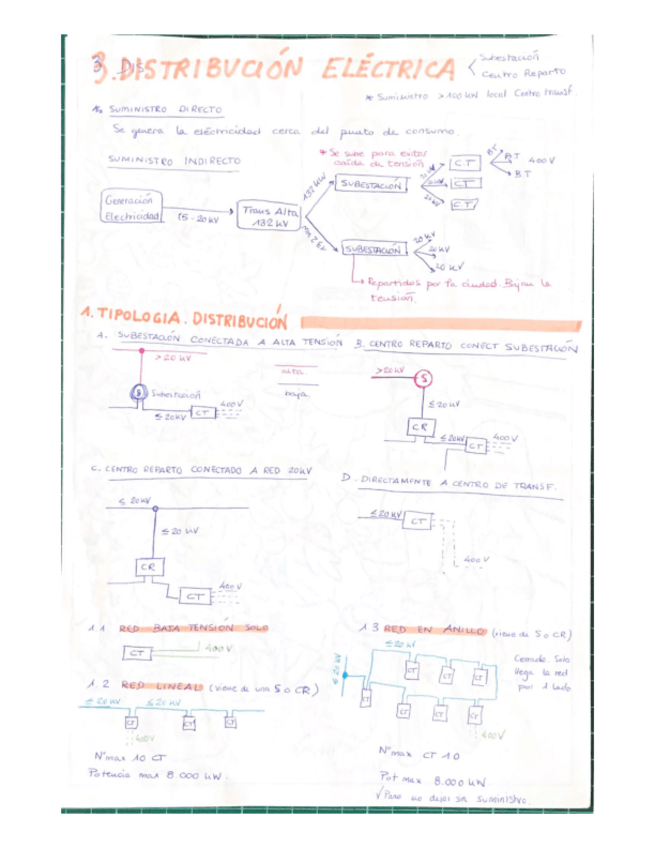 3. DISTRIBUCIÓN ELÉCTRICA
Subestación
Centro Reparto
* Suministro > 100 kW local Centro transf.
SUMINISTRO DIRECTO
Se genera la electricidad cerca del punto de consumo.
SUMINISTRO INDIRECTO
* Se sube para evitar
caída de tensión
Generación
Electricidad
15-20 kV
Trans Alta
132 kV
132 kV
SUBESTACIÓN
20 kV
20 kV
CT
CT
CT
BT
BT
400 V
SUBESTACIÓN
20 kV
20 kV
20 kV
Repartidos por la ciudad. Bajan la
tensión.
1. TIPOLOGIA. DISTRIBUCIÓN
A. SUBESTACIÓN CONECTADA A ALTA TENSIÓN
> 20 kV
S
Subestación
≤ 20 kV
CT
400 V
alta
baja
B. CENTRO REPARTO CONECT SUBESTACIÓN
> 20 kV
S
≤ 20 kV
CR
≤ 20 kV
CT
400 V
C. CENTRO REPARTO CONECTADO A RED 20 kV
≤ 20 kV
≤ 20 kV
CR
CT
400 V
D. DIRECTAMENTE A CENTRO DE TRANSF.
≤ 20 kV
CT
400 V
1.1 RED BAJA TENSIÓN SOLO
CT
400 V
1.2 RED LINEAL (viene de una S o CR)
≤ 20 kV
≤ 20 kV
CT
CT
CT
400 V
Nº max 10 CT
Potencia max 8.000 kW.
1.3 RED EN ANILLO (viene de S o CR)
≤ 20 kV
≤ 20 kV
CT
CT
CT
CT
CT
CT
CT
400 V
Cerrado. Solo
llega la red
por 1 lado
Nº max CT 10
Pot max 8.000 kW
√ Para no dejar sin suministro.